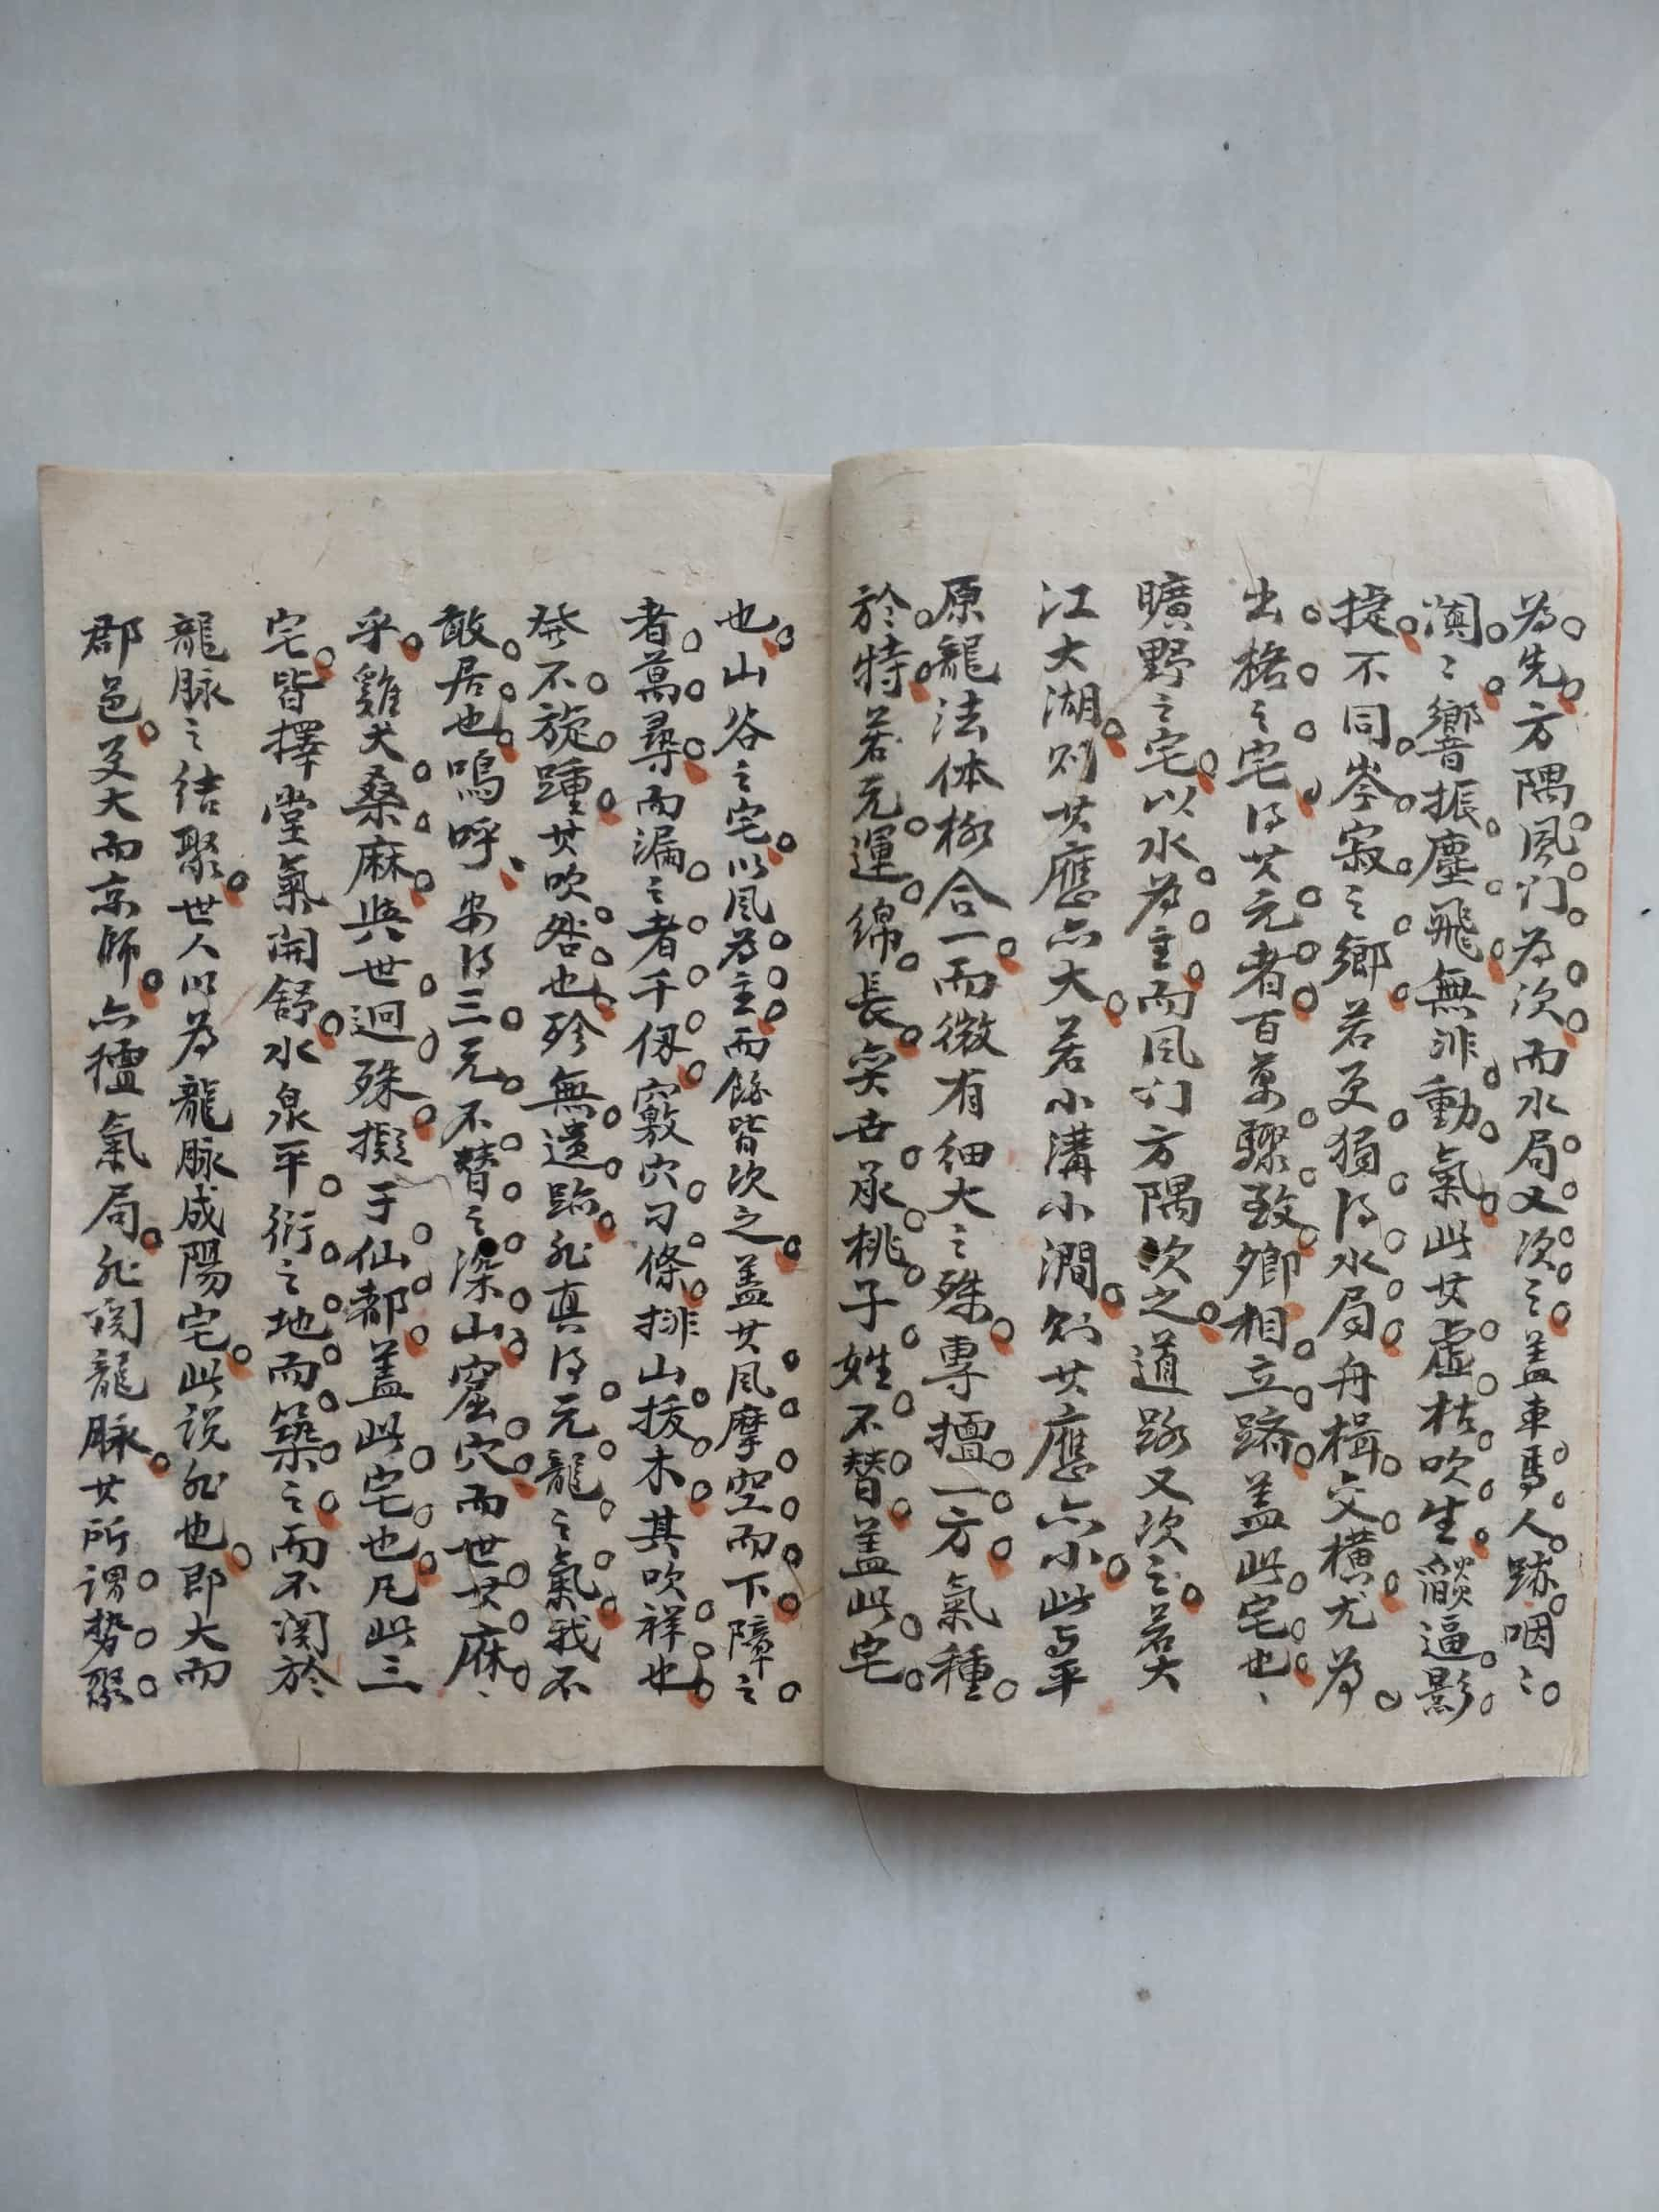 為先方隅風门為次而水局又次之盖車馬人跡咽〻
闐〻響振塵飛無非動氣此其虛枯吹生影逼影
捷不同岑寂之鄉若更猖得水局舟楫交橫尤為
出格之宅得其元者百萬驟致卿相立躋盖此宅也
曠野之宅以水為主而风门方隅次之道路又次之若大
江大湖则其應亦大若小溝小澗则其應亦小此与平
原龍法体格合一而微有细大之殊專擅一方氣種
於特若元運绵長奕世承桃子姓不替盖此宅
也山谷之宅以風為主而餘皆次之盖其风摩空而下障之
者萬尋而漏之者千仞竅穴刁條排山拔木其吹祥也
發不旋踵其吹咎也殄無遺跡非真得元龍之氣我不
敢居也嗚呼安得三元不替之深山窟穴而世其麻
乎雞犬桑麻與世迥殊擬于仙都盖此宅也凡此三
宅皆擇堂氣開舒水泉平衍之地而築之而不関於
龍脉之结聚世人以為龍脉成陽宅此説非也即大而
郡邑更大而京師亦擅氣局非関龍脉其所谓势聚